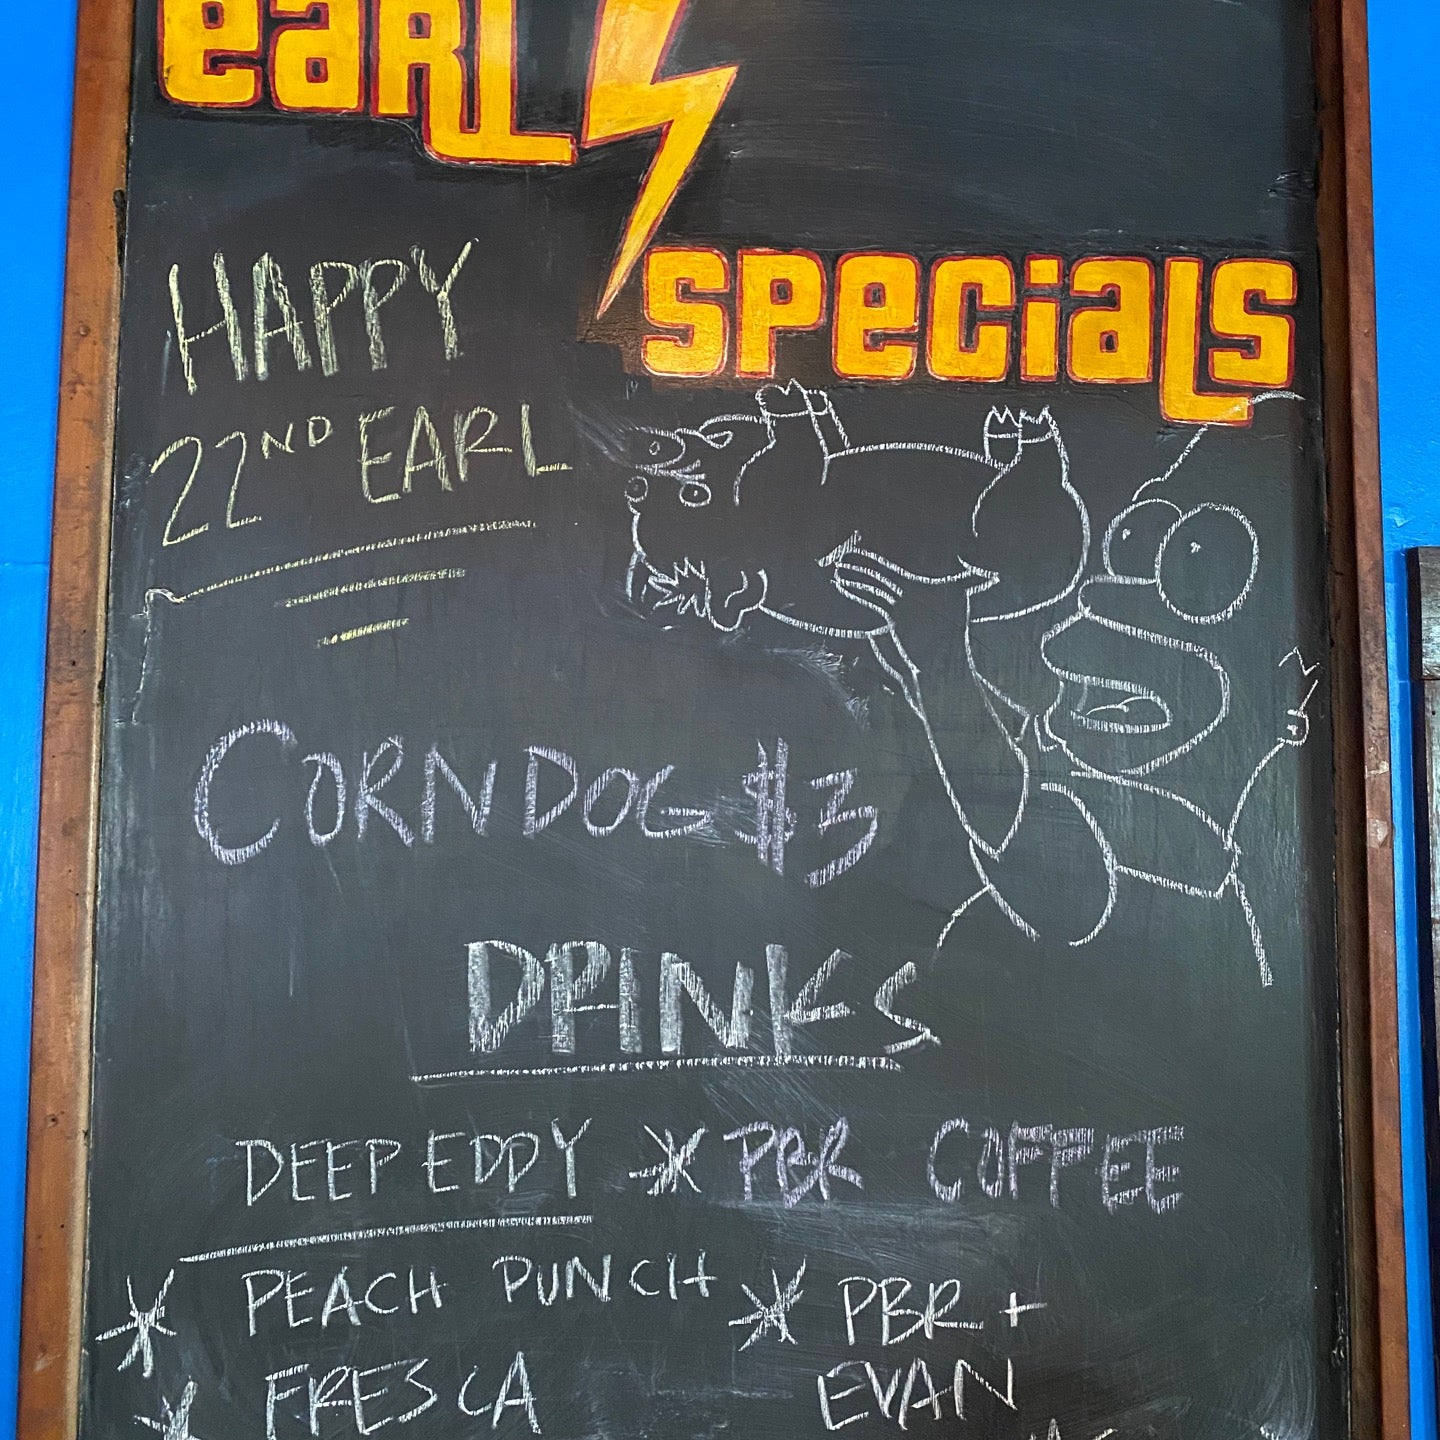 earl
specials
HAPPY
22ND EARL
CORNDOG $3
DRINKS
DEEP EDDY * PBR COFFEE
* PEACH PUNCH * PBR +
* FRESCA EVAN